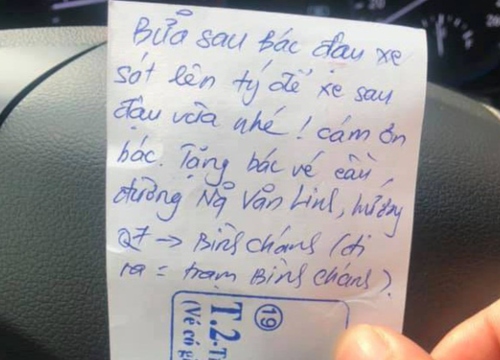 Bữa sau bác đậu xe
sót lên tý để xe sau
đậu vừa nhé! cám ơn
bác. Tặng bác vé cầu,
đường Ng Văn Linh, hướng
Q7 → Bình Chánh (đi
ra = trạm Bình Chánh).
19
T.2-T
(Vé có gi